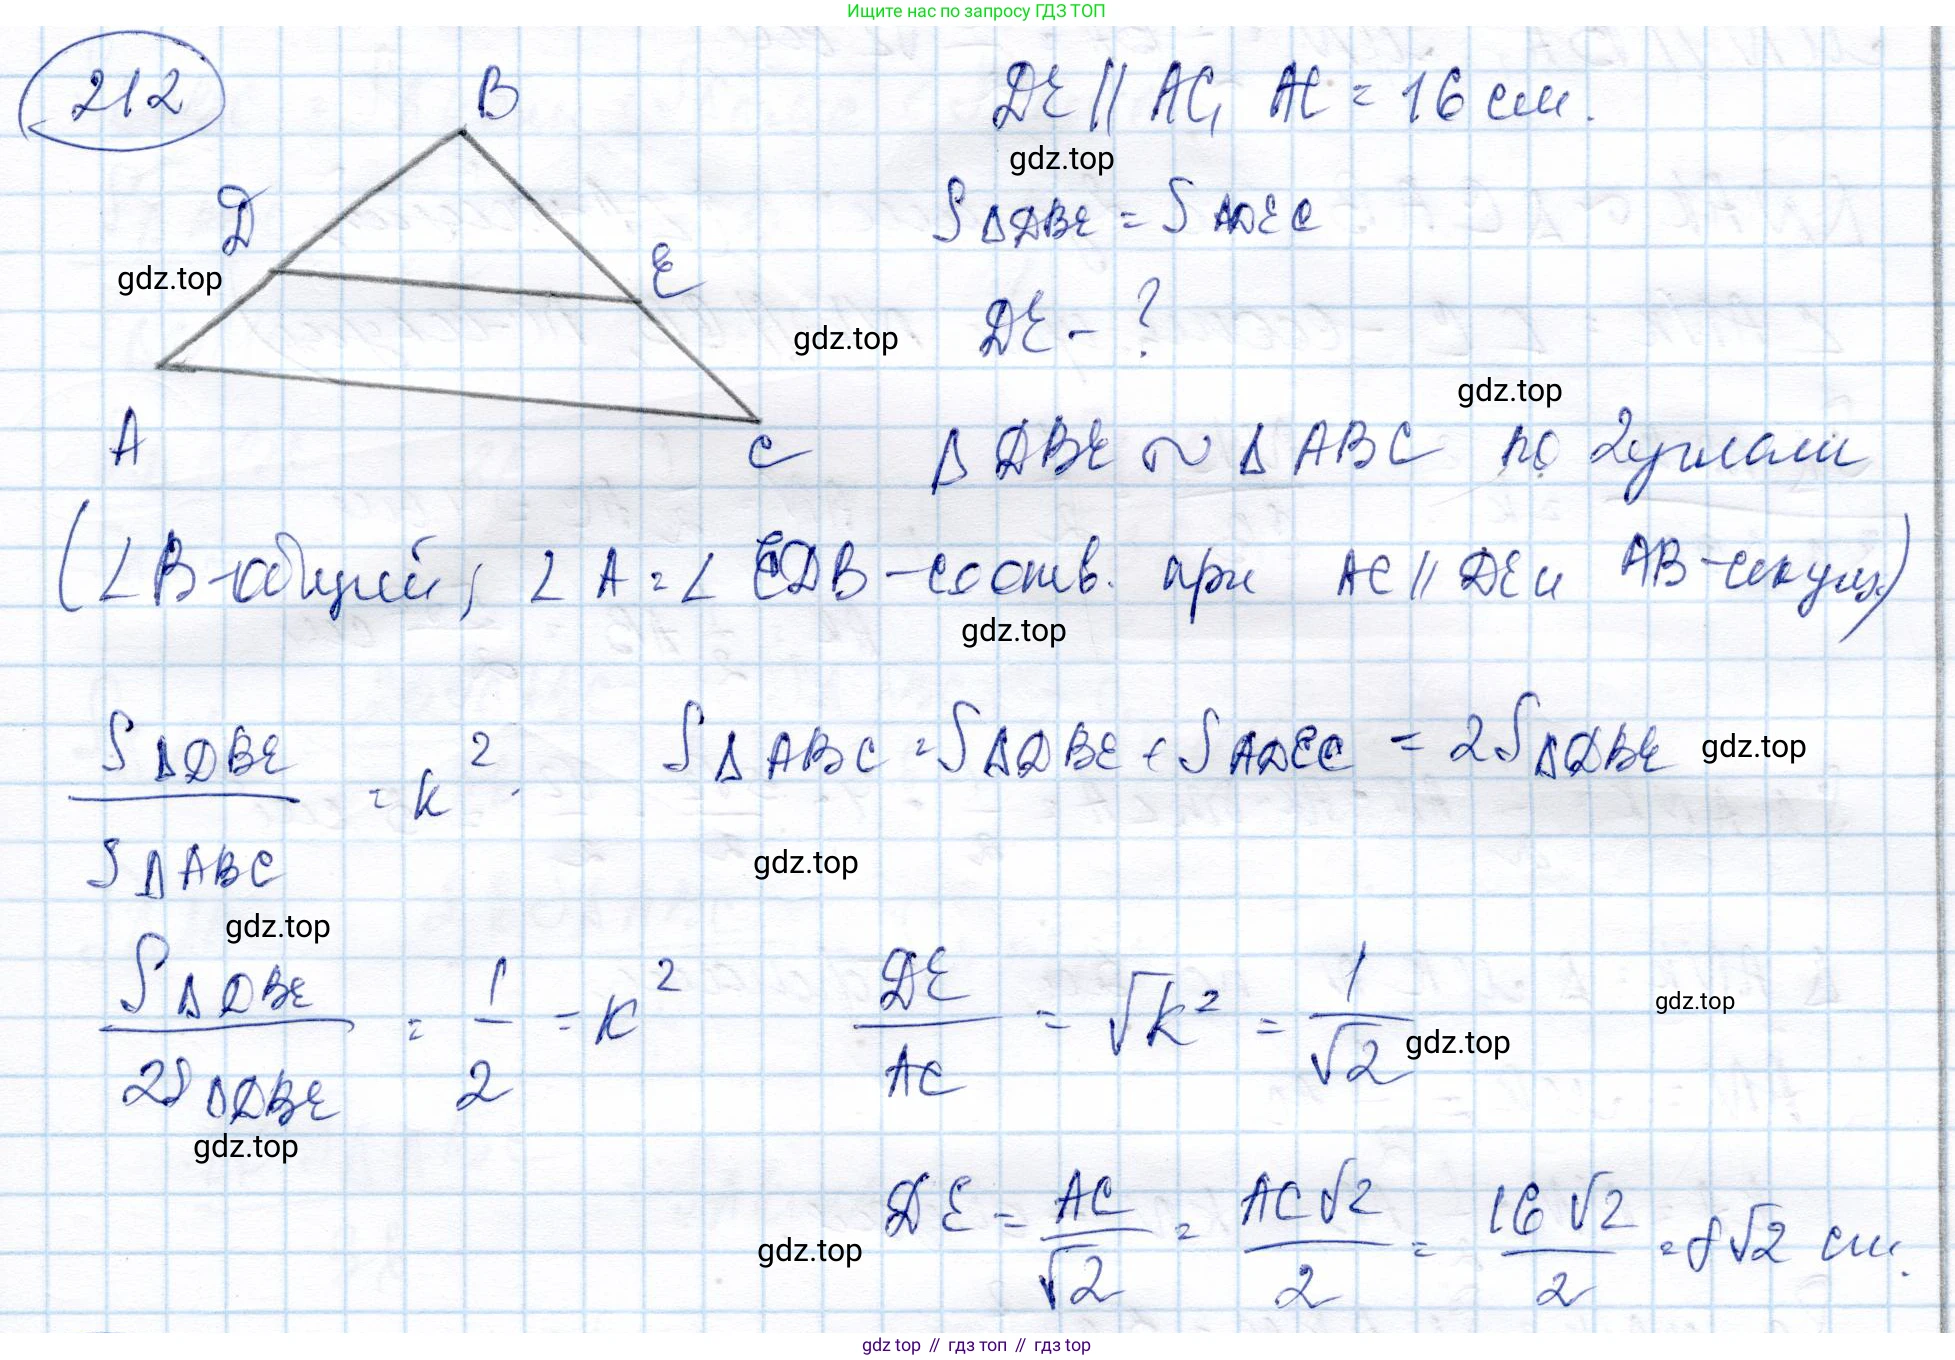 Ищите нас по запросу ГДЗ ТОП
212
B
DE || AC, AC = 16 см.
gdz.top
D
S ΔDBE = S ADEC
E
gdz.top
DE - ?
gdz.top
gdz.top
A
C
Δ DBE ~ Δ ABC по 2 углам
(∠B - общий; ∠A = ∠EDB - соотв. при AC || DE и AB - секущ.)
gdz.top
S ΔDBE / S ΔABC = k². S ΔABC = S ΔDBE + S ADEC = 2S ΔDBE
gdz.top
gdz.top
gdz.top
S ΔDBE / 2S ΔDBE = 1/2 = k² DE/AC = √k² = 1/√2
gdz.top
gdz.top
gdz.top
DE = AC/√2 = AC√2/2 = 16√2/2 = 8√2 см.
gdz.top
gdz.top // гдз топ // гдз top